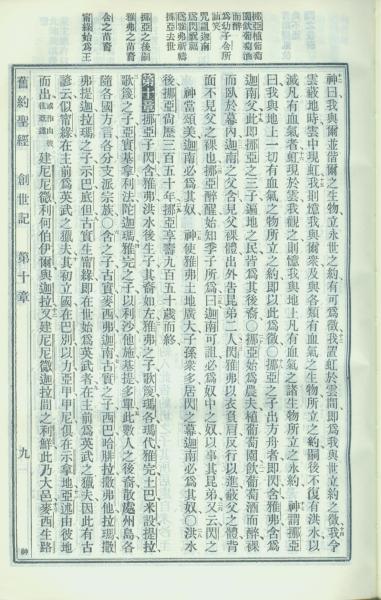 挪亞植葡萄
園飲葡萄酒
而醉
爲幼子含所
訕笑
咒詛迦南
爲閃祝福
爲雅弗祈禱
挪亞去世
挪亞之後嗣
雅弗之苗裔
含之苗裔
甯綠始爲王
神曰我與爾並偕爾之生物立永世之約有可爲徵我置虹於雲間卽爲我與世立約之徵我令
雲蔽地時雲中現虹我則憶我與爾衆及與各類有血氣之生物所立之約嗣後不復有洪水以
滅凡有血氣者虹現於雲我觀之則憶我與地上凡有血氣之諸生物所立之永約 神謂挪亞
曰我與地上一切有血氣之物所立之約卽以此爲徵〇挪亞之子出方舟者卽閃含雅弗含爲
迦南父此卽挪亞之三子遍地之民皆爲其後裔〇挪亞始爲農夫植葡萄園飲葡萄酒而醉裸
而臥於幕內迦南之父含見父裸體出外告昆弟二人閃雅弗以衣負肩反行以進蔽父之體背
面不見父之裸也挪亞醉醒始知季子所爲曰迦南可詛必爲奴中之奴以事其昆弟又云閃之
神當頌美迦南必爲其奴 神使雅弗土地廣大子孫衆多居閃之幕迦南必爲其奴〇洪水
後挪亞尚歷三百五十年挪亞享壽九百五十歲而終
第十章 挪亞子閃含雅弗洪水後生子其裔如左雅弗之子歌篾瑪各瑪代雅完土巴米設提拉
歌篾之子亞實基拿利法陀迦瑪雅完之子以利沙他施基提多單此數人之後裔散處州島各
隨各國方言各分支派宗族〇含之子古實麥西弗迦南古實之子西巴哈腓拉撒弗他拉瑪撒
弗提迦拉瑪之子示巴底但古實生甯綠卽在世始爲英武者在主前爲英武之獵夫因此有古
諺云似甯綠在主前爲英武之獵夫其初立國在巴別以力亞甲甲尼俱在示拿地亞述由彼地
而出或作由彼往亞述建尼尼微利何伯伊爾與迦拉又建尼尼微迦拉間之利鮮此乃大邑麥西生路
舊約聖經 創世記 第十章 九 神